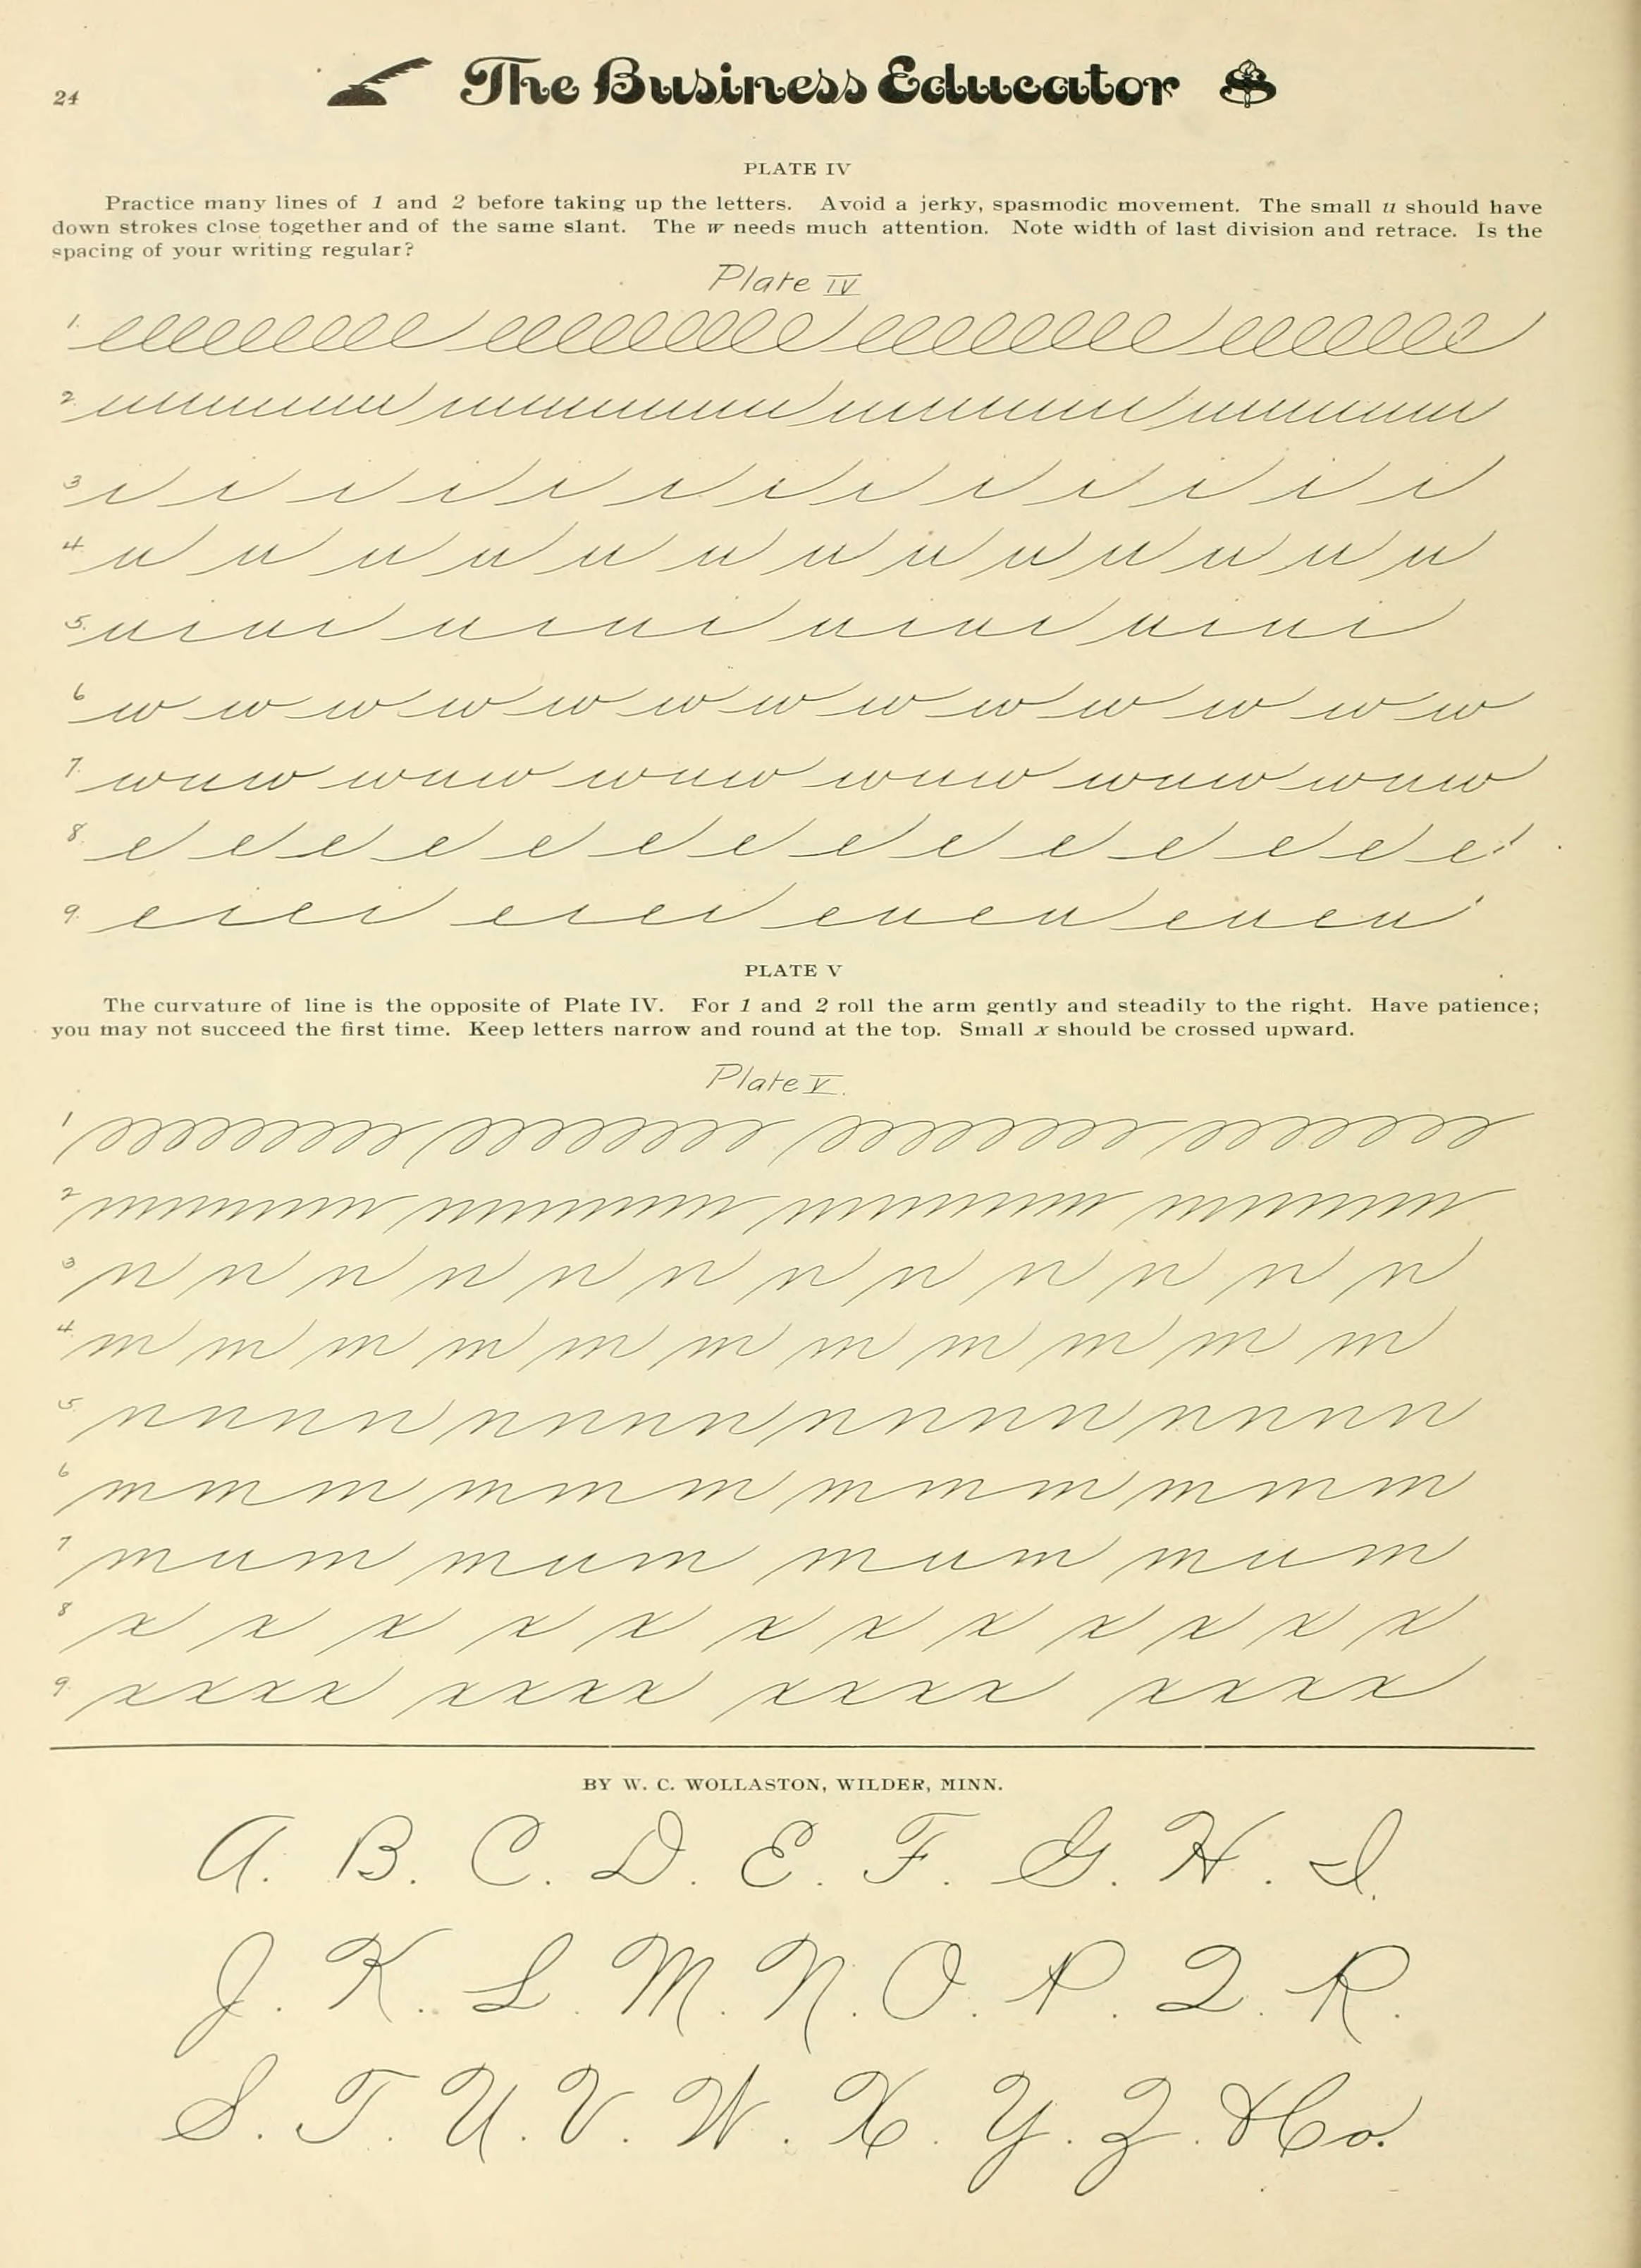 24
The Business Educator
PLATE IV
Practice many lines of 1 and 2 before taking up the letters. Avoid a jerky, spasmodic movement. The small u should have
down strokes close together and of the same slant. The w needs much attention. Note width of last division and retrace. Is the
spacing of your writing regular?
Plate IV
1. eeeeeeeee eeeeeeeeee eeeeeeeee eeeeeeee
2
3 i i i i i i i i i i i i i
4 u u u u u u u u u u u u u
5. uiui uiui uiui uiui
6 w w w w w w w w w w w w w
7. wuw wuw wuw wuw wuw wuw
8. e e e e e e e e e e e e e
9. eiei eiei eueu eueu
PLATE V
The curvature of line is the opposite of Plate IV. For 1 and 2 roll the arm gently and steadily to the right. Have patience;
you may not succeed the first time. Keep letters narrow and round at the top. Small x should be crossed upward.
Plate V.
1
2
3 n n n n n n n n n n n n
4. m m m m m m m m m m m
5 nnnn nnnn nnnn nnnn
6 mmm mmm mmm mmm
7 mum mum mum mum
8 x x x x x x x x x x x x
9. xxxx xxxx xxxx xxxx
BY W. C. WOLLASTON, WILDER, MINN.
A. B. C. D. E. F. G. H. I.
J. K. L. M. N. O. P. Q. R.
S. T. U. V. W. X. Y. Z. &Co.